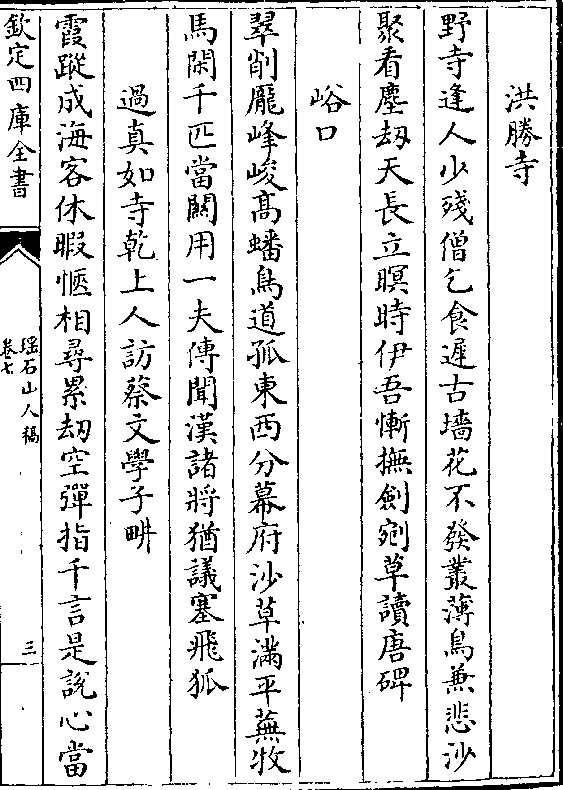 洪勝寺
野寺逢人少殘僧乞食遲古墻花不發叢薄鳥兼悲沙
聚看塵刼天長立暝時伊吾慚撫劍剜草讀唐碑
峪口
翠削龎峰峻髙蟠鳥道孤東西分幕府沙草滿平蕪牧
馬閑千匹當闗用一夫傳聞漢諸將猶議塞飛狐
過真如寺乾上人訪蔡文學子畊
霞蹤成海客休暇愜相尋累刼空彈指千言是說心當
欽定四庫全書
瑶石山人稿
卷七
三